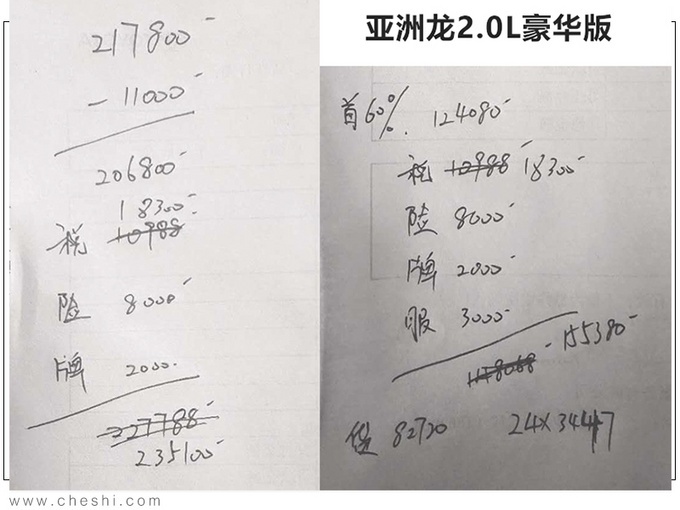 亚洲龙2.0L豪华版
217800
- 11000
206800
18300
税 10988
险 8000
牌 2000
227788
235100
首60% 124080
税 10988 18300
险 8000
牌 2000
服 3000
155380
贷 82720 24×3447
www.cheshi.com